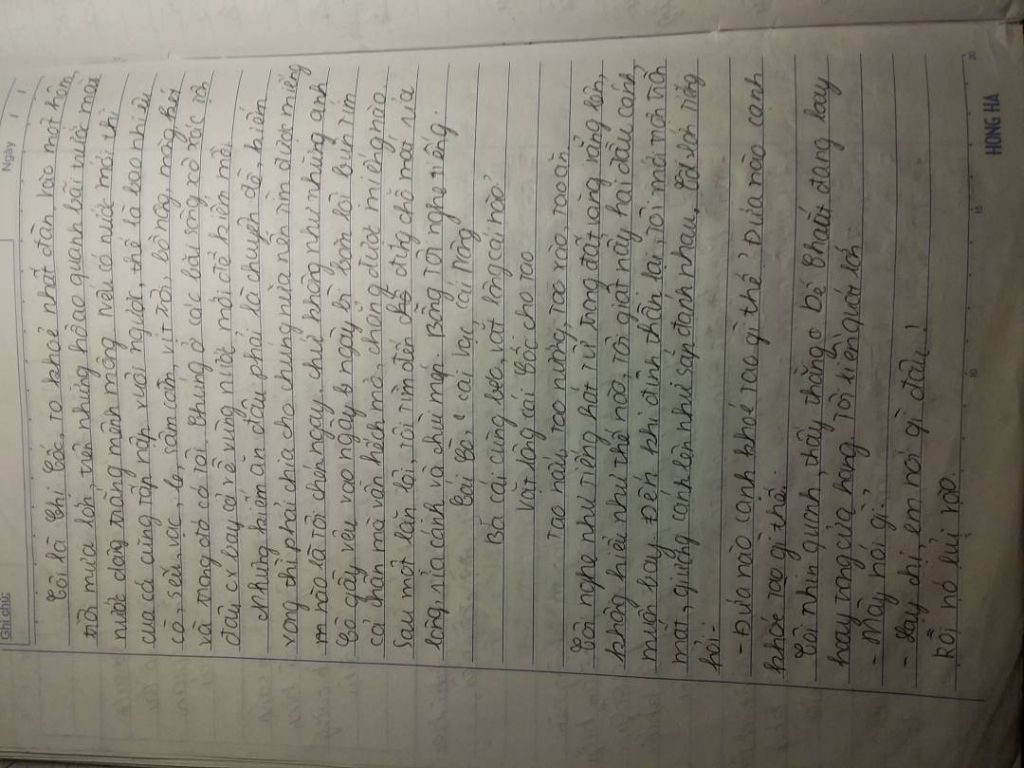 Ghi chú:
Ngày
Tôi là Chị Cốc, to khoẻ nhất đàn. Vào một hôm,
trời mưa lớn, trên những hồ ao quanh bãi trước mặt
nước dâng trắng mênh mông. Nếu có nước mới, thì
cua cá cũng tấp nập xuôi ngược, thế là bao nhiêu
cò, sếu, vạc, le, sâm cầm, vịt trời, bồ nông, mòng két
và trong đó có tôi. Chúng ở các bãi sông xơ xác tới
đâu cx bay cả về vùng nước mới để kiếm mồi.
Nhưng kiếm ăn đâu phải là chuyện dễ, hiếm
vọng thì phải chia cho chúng nữa nên tìm được miếng
m nào là tôi chén ngay, chứ không như những anh
Cò gầy yếu vêu vao ngày b ngày bì bõm lội bùn tím
cả chân mà vẫn hếch mỏ, chẳng được miếng nào.
Sau một lần tôi, tôi tìm đến đứng chỗ mát rỉa
lông, rỉa cánh và chùi mép. Bỗng tôi nghe tiếng.
Cái Cò, cái Vạc, cái Nông
Ba cái cùng béo, vặt lông cái nào?
Vặt lông cái Cốc cho tao
Tao nấu, tao nướng, tao xào, tao ăn.
Tôi nghe như tiếng hát từ trong đất vẳng vẳng lên,
không hiểu như thế nào, tôi giật nẩy hai đầu cánh,
muốn bay. Đến khi định thần lại, tôi mới trợn tròn
mắt, giương cánh lên như sắp đánh nhau. Tôi lên tiếng
hỏi:
- Đứa nào cạnh khoé tao gì thế? Đứa nào cạnh
khoé tao gì thế.
Tôi nhìn quanh, thấy thằng Dế Choắt đang loay
hoay trong cửa hang. Tôi liền quát lớn
- Mày nói gì?
- Lạy chị, em nói gì đâu!
Rồi nó lủi vào.
5
10
15
20
HONG HA